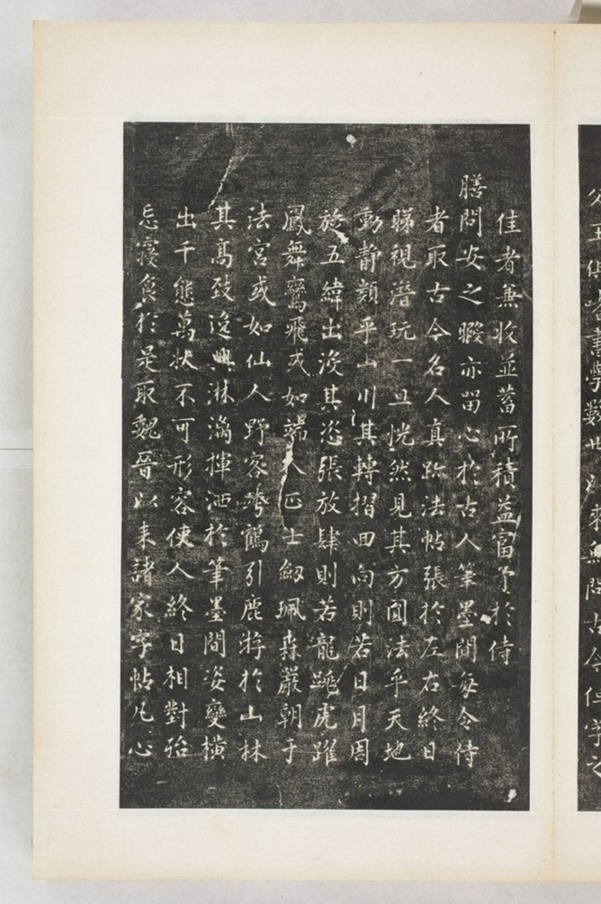 佳者兼收並蓄所積益富予於侍
膳問安之暇亦留心於古人筆墨間每令侍
者取古今名人真跡法帖張於左右終日
睇視潛玩一旦恍然見其方圓法乎天地
動靜類乎山川其轉摺回向則若日月周
於五緯出沒其恣張放肆則若龍跳虎躍
鳳舞鸞飛或如端人正士劔珮森嚴朝于
法宮或如仙人野客跨鶴引鹿游於山林
其高致逸興淋漓揮洒於筆墨間姿變橫
出千態萬狀不可形容使人終日相對殆
忘寢食於是取魏晉以來諸家字帖凡心